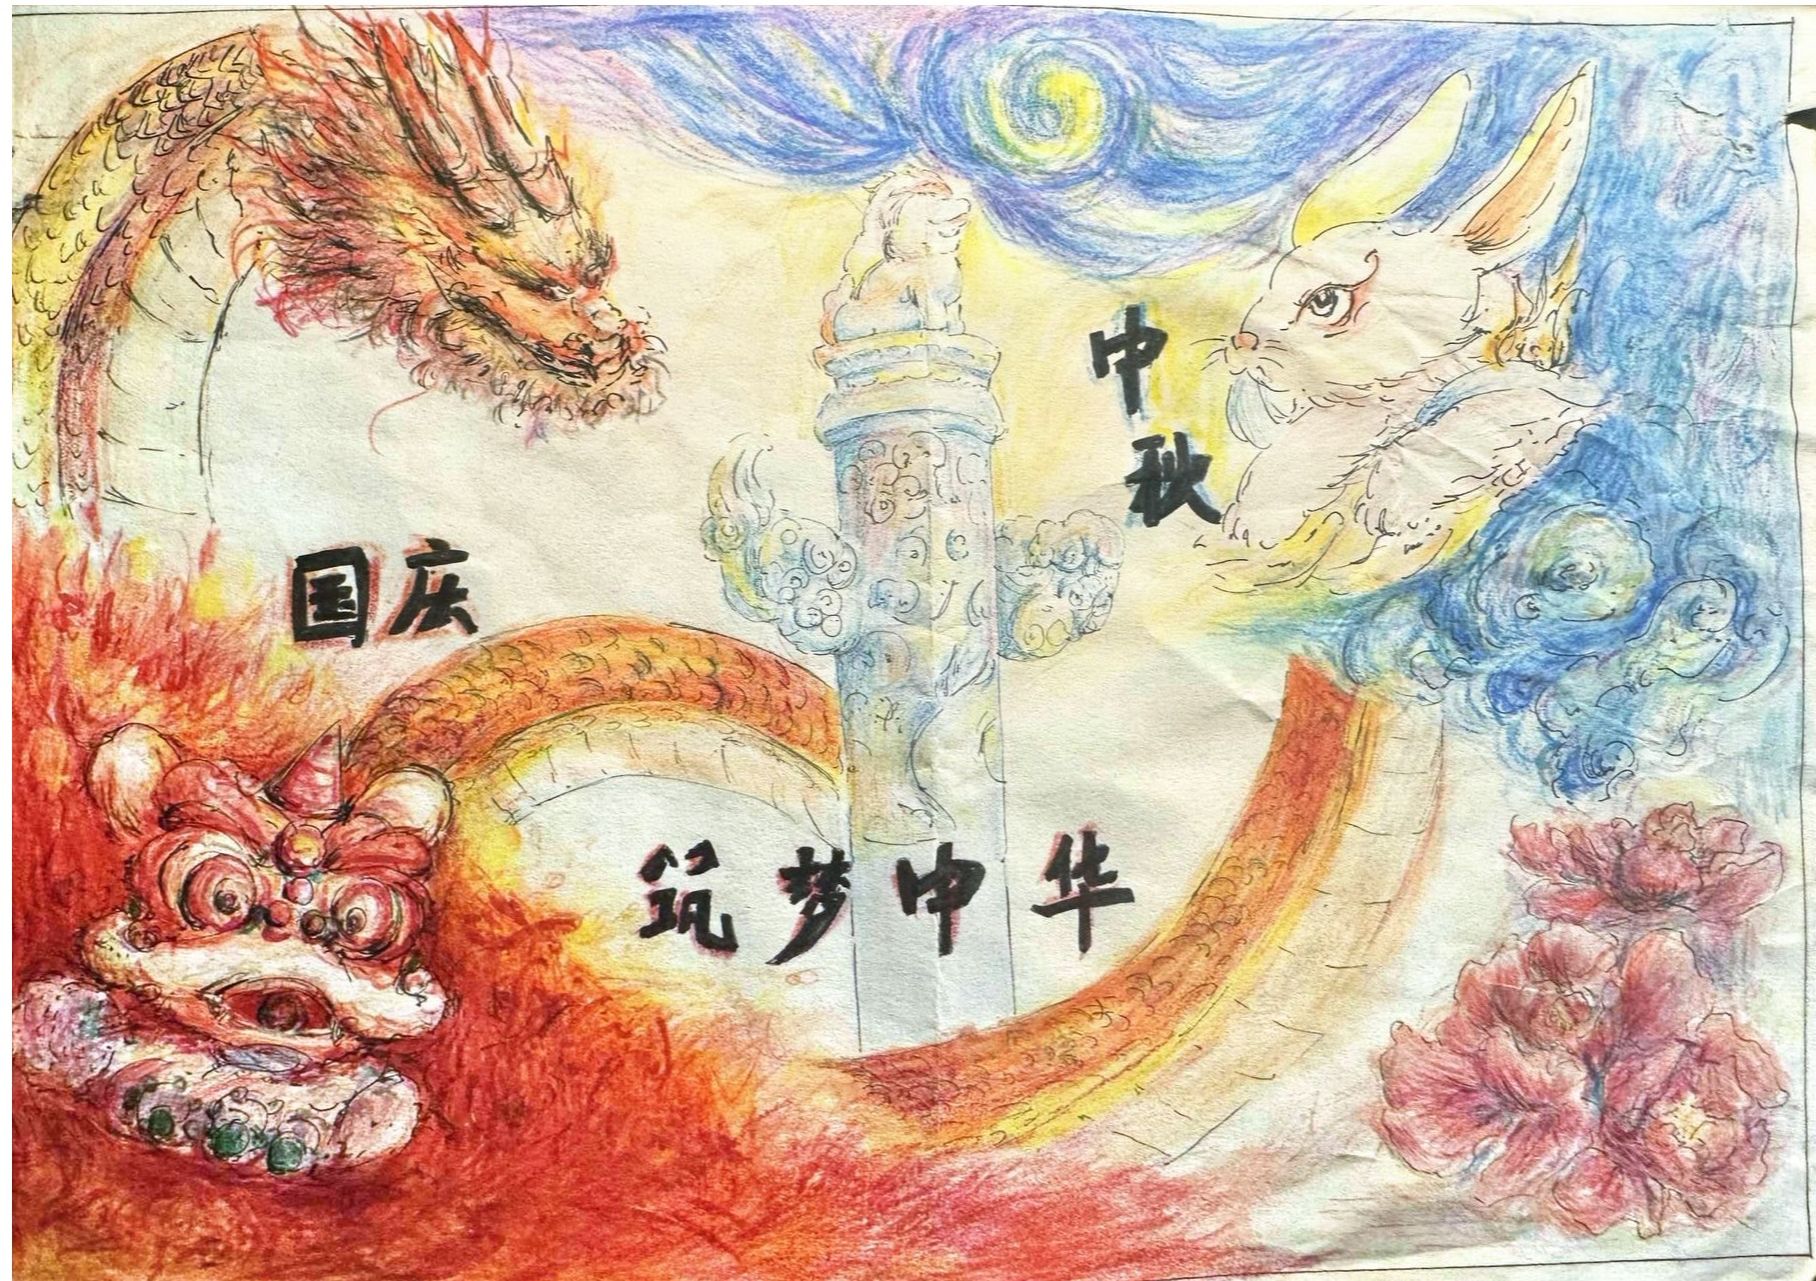 国庆
中秋
筑梦中华